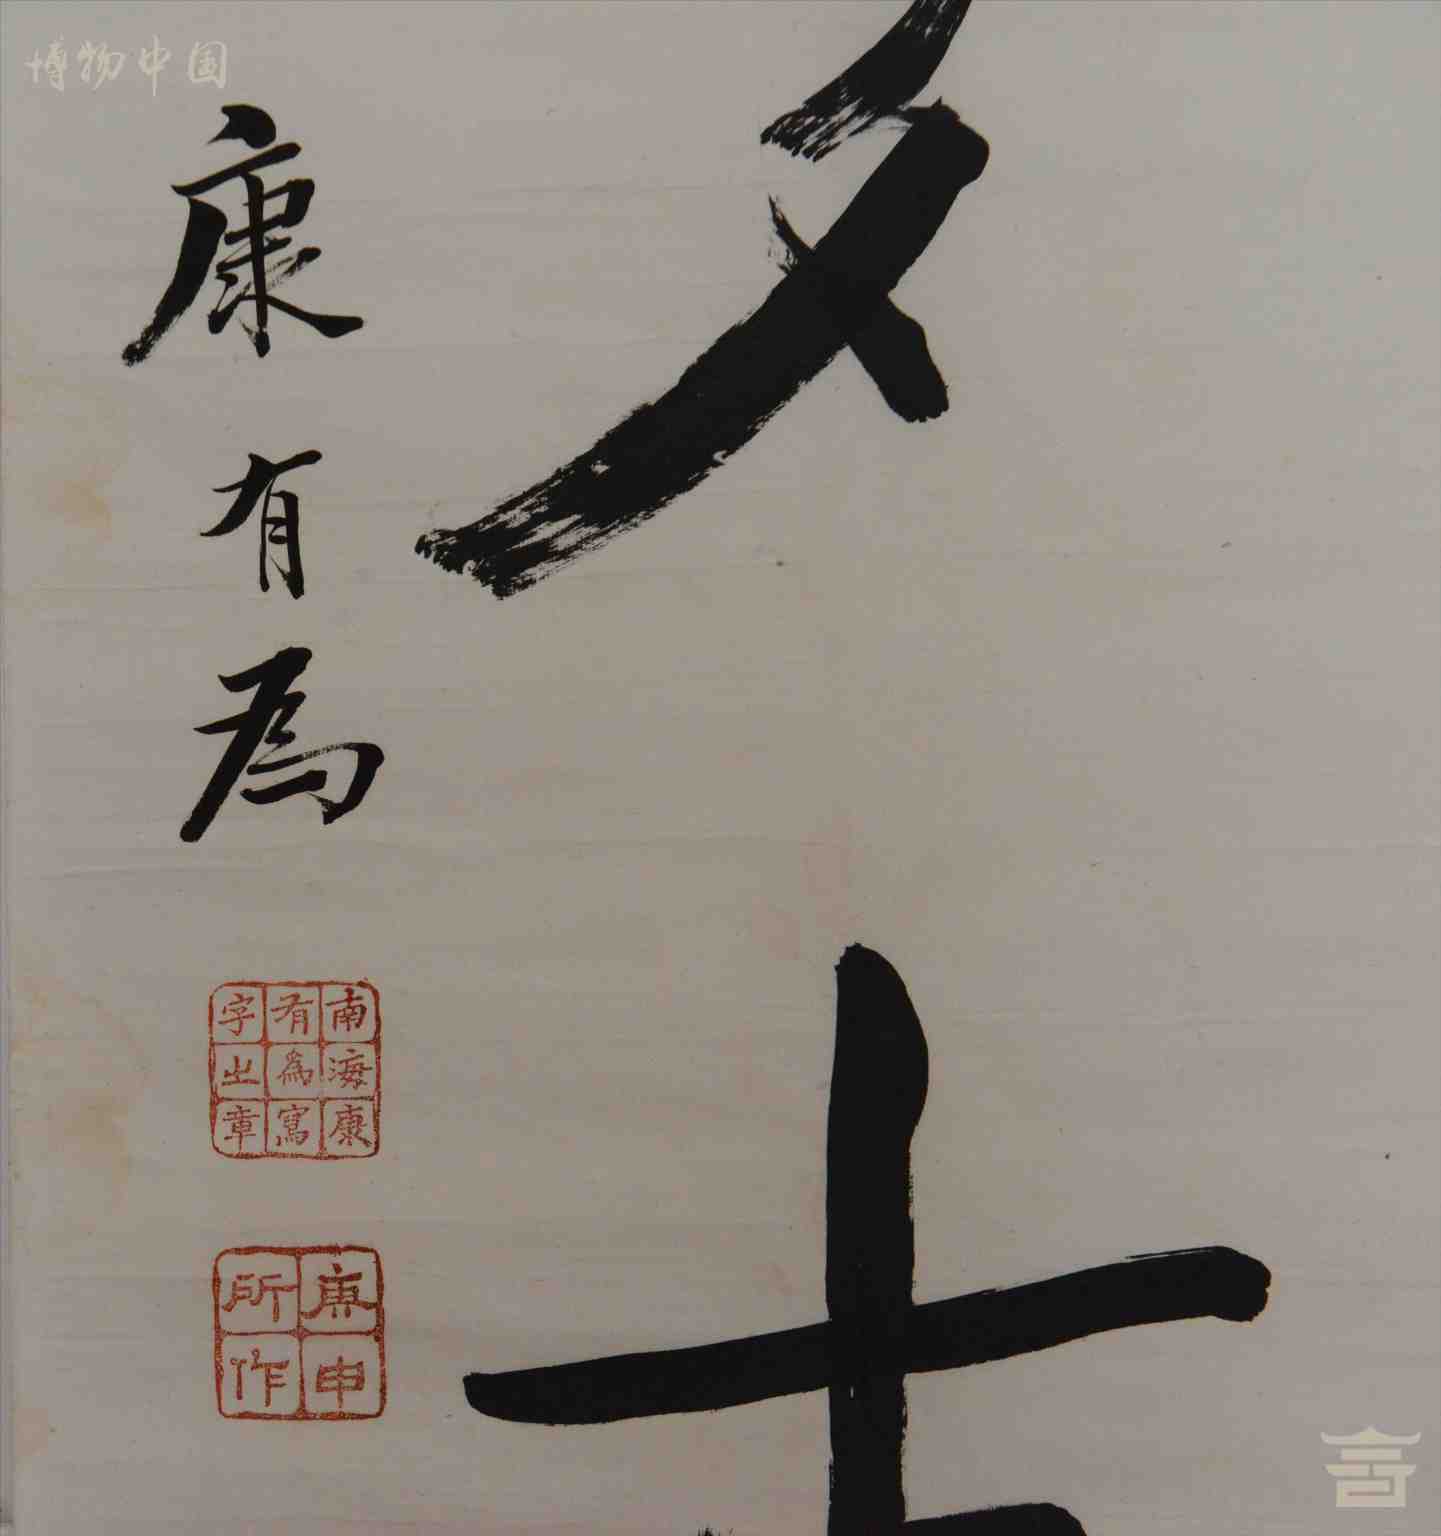 博物中国
康有為
南海康
有為寫
字之章
庚申
所作